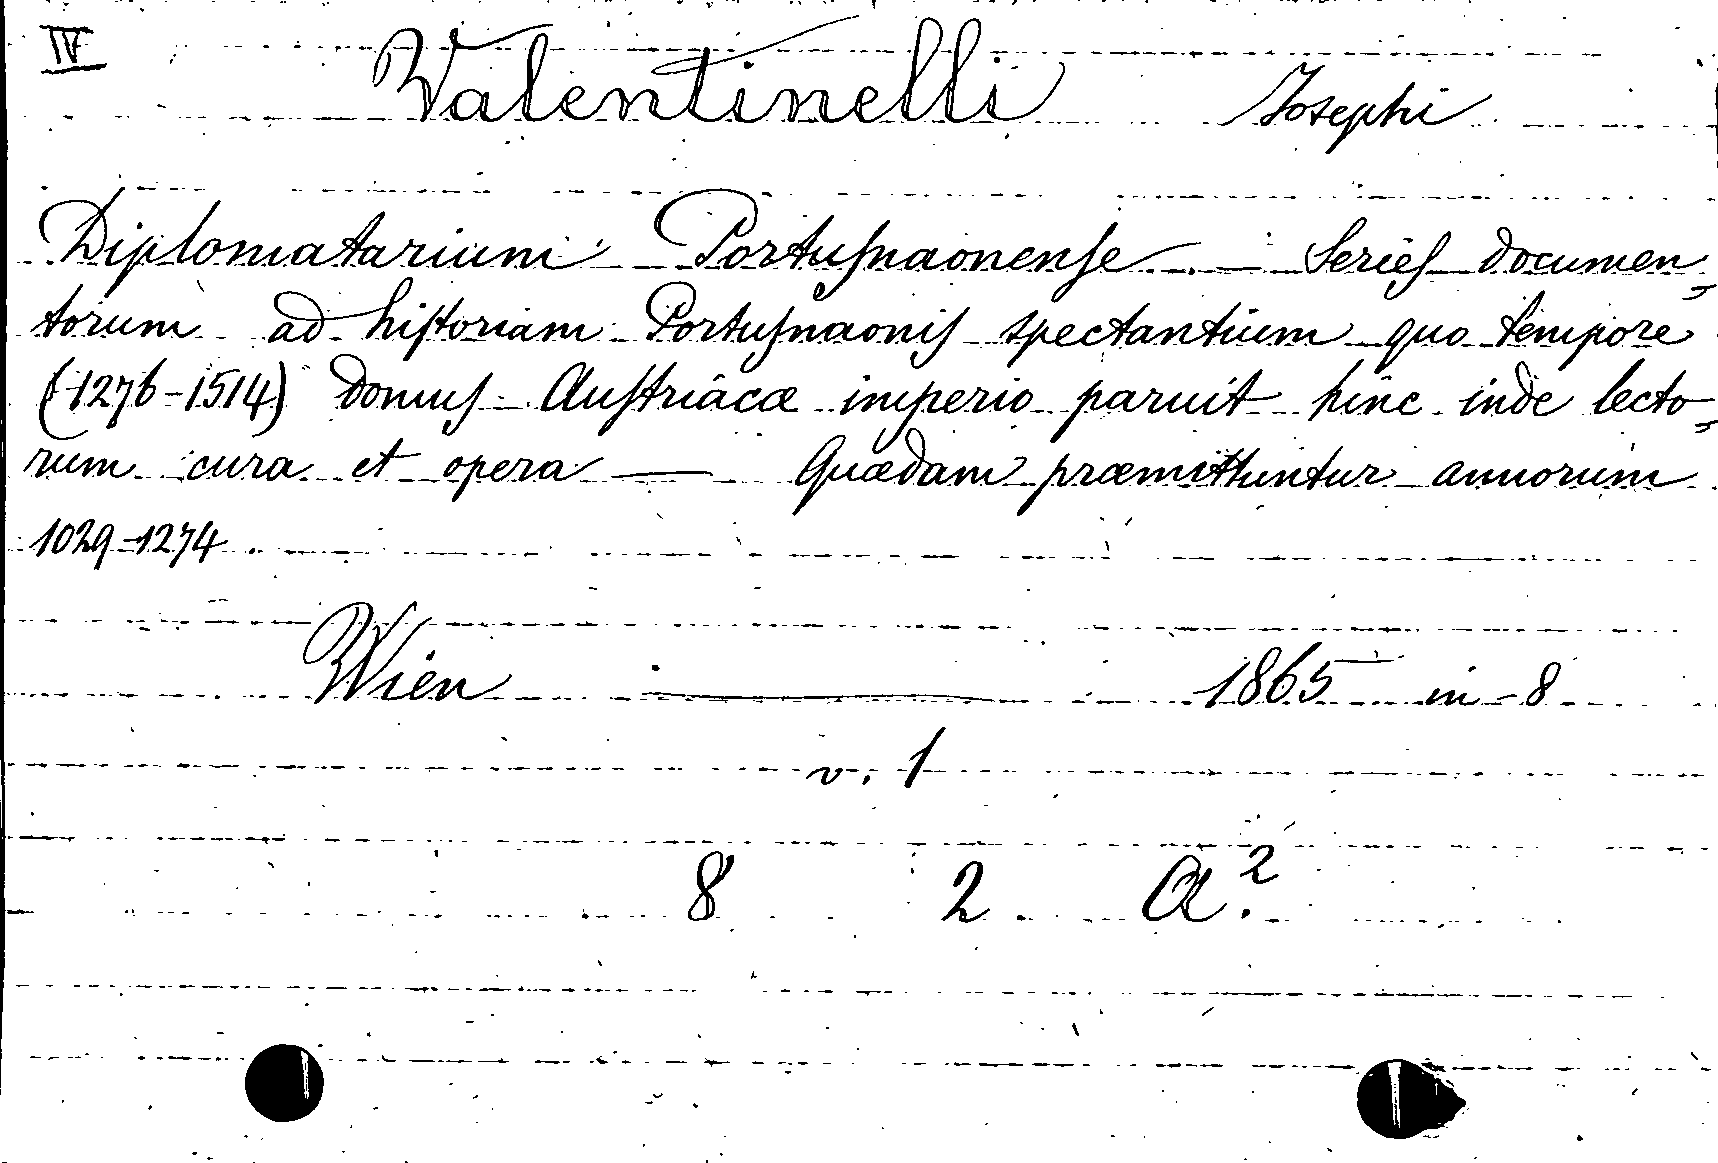 IV
Valentinelli Josephi
Diplomatarium Portusnaonense — Series documen-
torum ad historiam Portusnaonis spectantium quo tempore
(1276-1514) domus Austriacæ imperio paruit hinc inde lecto-
rum cura et opera — Quædam præmittuntur annorum
1029-1274.
Wien — 1865 in-8
v. 1
8 2 A.²